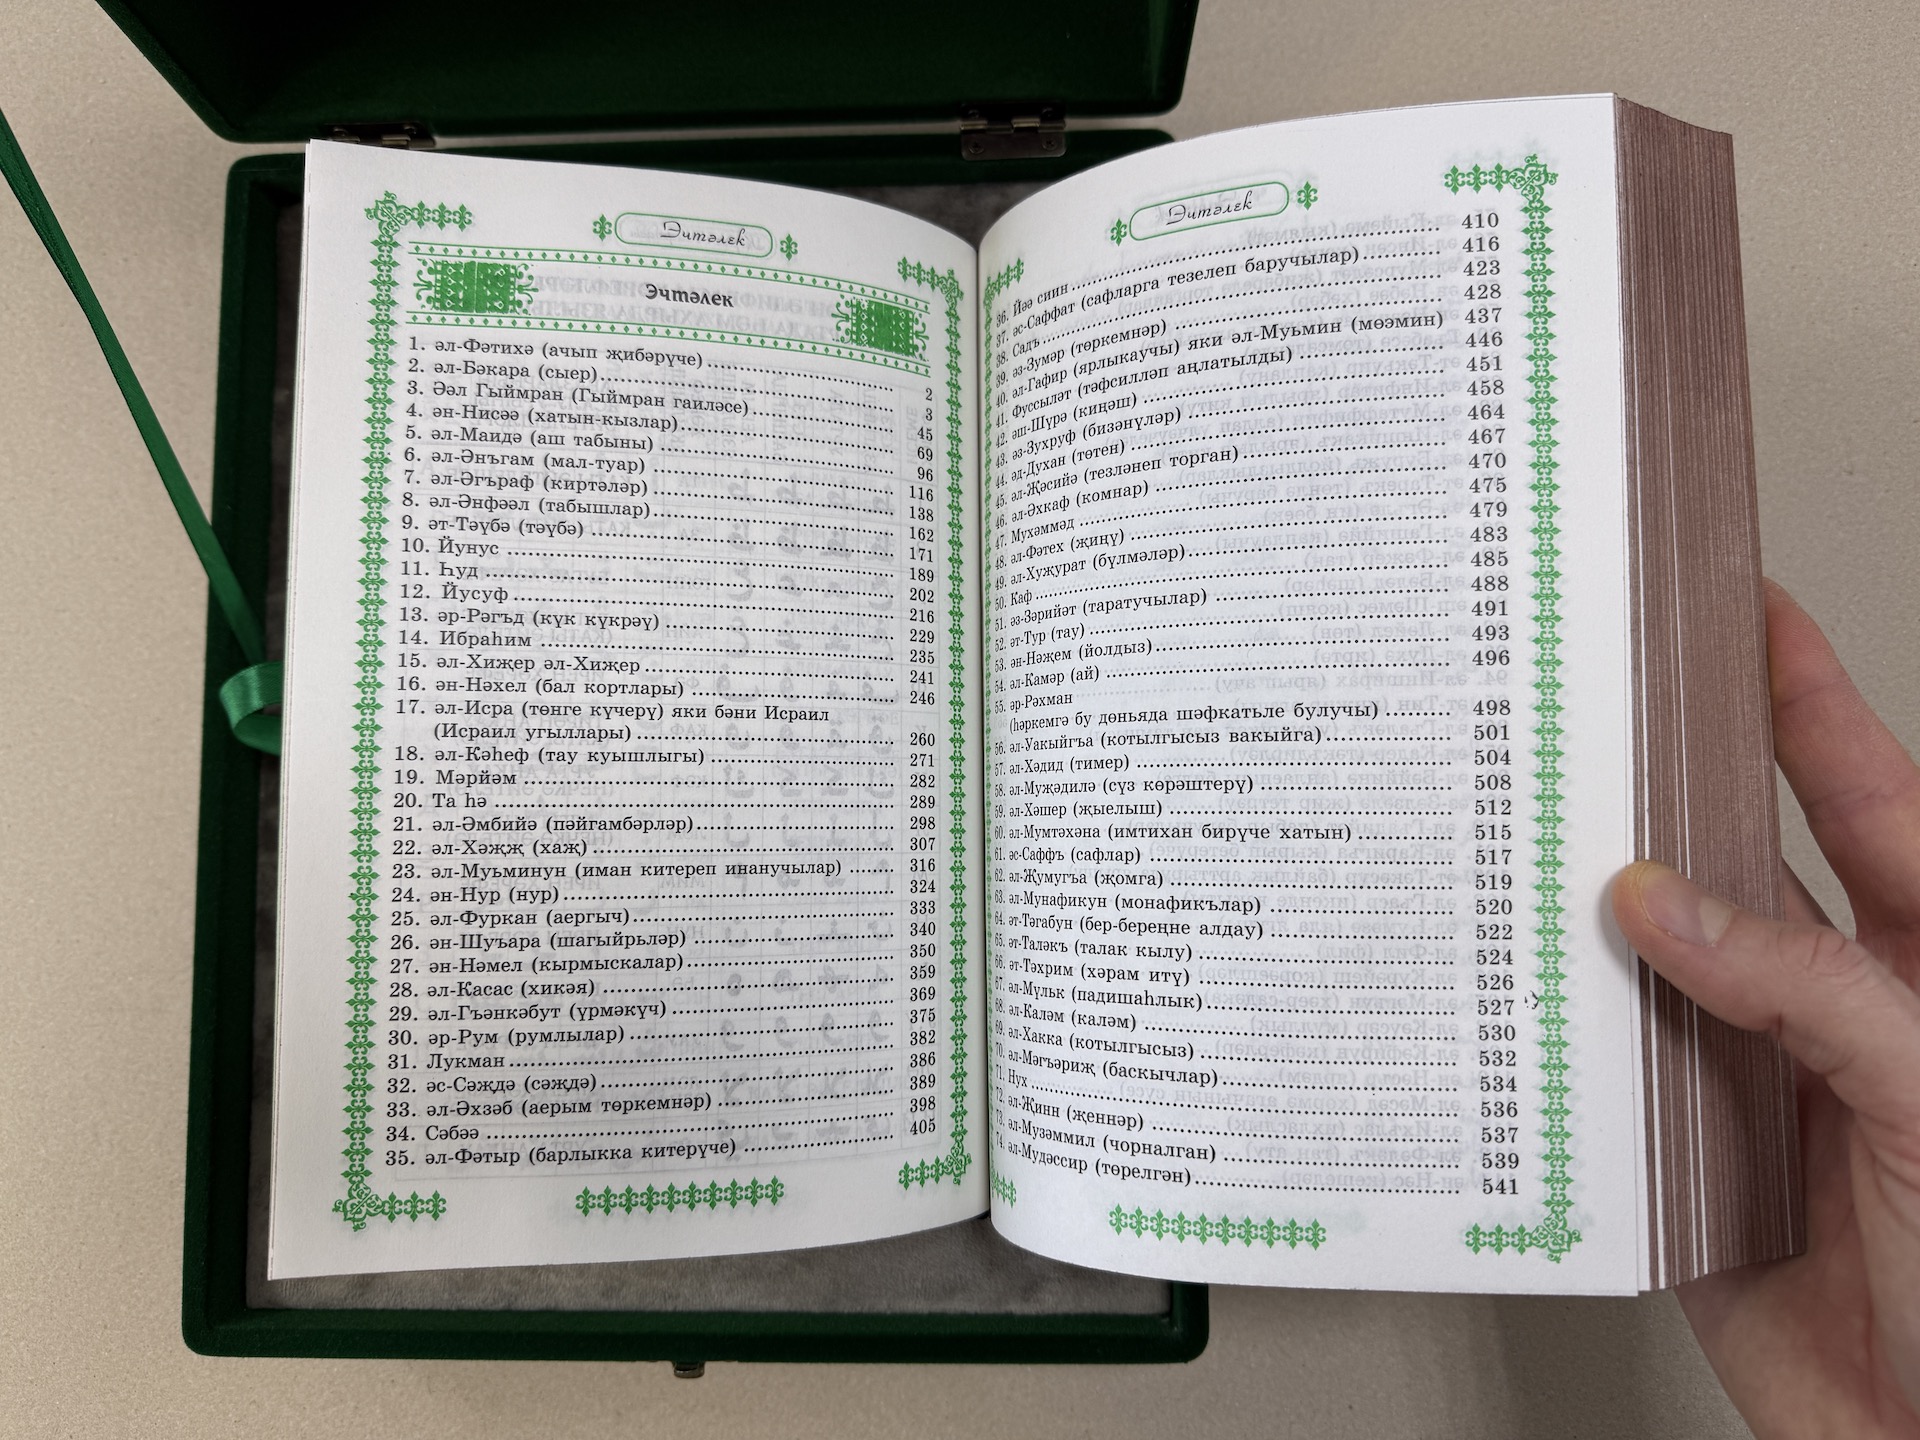 Эчтәлек
Эчтәлек
1. әл-Фәтихә (ачып җибәрүче) 2
2. әл-Бәкара (сыер) 3
3. Әәл Гыймран (Гыймран гаиләсе) 45
4. ән-Нисәә (хатын-кызлар) 69
5. әл-Маидә (аш табыны) 96
6. әл-Әнъгам (мал-туар) 116
7. әл-Әгъраф (киртәләр) 138
8. әл-Әнфәәл (табышлар) 162
9. әт-Тәүбә (тәүбә) 171
10. Йунус 189
11. Һуд 202
12. Йусуф 216
13. әр-Рәгъд (күк күкрәү) 229
14. Ибраһим 235
15. әл-Хиҗер әл-Хиҗер 241
16. ән-Нәхел (бал кортлары) 246
17. әл-Исра (төнге күчерү) яки бәни Исраил
(Исраил угыллары) 260
18. әл-Кәһеф (тау куышлыгы) 271
19. Мәрйәм 282
20. Та һә 289
21. әл-Әмбийә (пәйгамбәрләр) 298
22. әл-Хәҗҗ (хаҗ) 307
23. әл-Муьминун (иман китереп инанучылар) 316
24. ән-Нур (нур) 324
25. әл-Фуркан (аергыч) 333
26. ән-Шуъара (шагыйрьләр) 340
27. ән-Нәмел (кырмыскалар) 350
28. әл-Касас (хикәя) 359
29. әл-Гъәнкәбут (үрмәкүч) 369
30. әр-Рум (румлылар) 375
31. Лукман 382
32. әс-Сәҗдә (сәҗдә) 386
33. әл-Әхзәб (аерым төркемнәр) 389
34. Сәбәә 398
35. әл-Фәтыр (барлыкка китерүче) 405
Эчтәлек
36. Йәә сиин 410
37. әс-Саффат (сафларга тезелеп баручылар) 416
38. Садъ 423
39. әз-Зумәр (төркемнәр) 428
40. әл-Гафир (ярлыкаучы) яки әл-Муьмин (мөэмин) 437
41. Фуссыләт (тәфсилләп аңлатылды) 446
42. әш-Шүрә (киңәш) 451
43. әз-Зухруф (бизәнүләр) 458
44. әд-Духан (төтен) 464
45. әл-Җәсийә (тезләнеп торган) 467
46. әл-Әхкаф (комнар) 470
47. Мухәммәд 475
48. әл-Фәтех (җиңү) 479
49. әл-Хуҗурат (бүлмәләр) 483
50. Каф 485
51. әз-Зәрийәт (таратучылар) 488
52. әт-Тур (тау) 491
53. ән-Нәҗем (йолдыз) 493
54. әл-Камәр (ай) 496
55. әр-Рәхман
(һәркемгә бу дөньяда шәфкатьле булучы) 498
56. әл-Уакыйгъа (котылгысыз вакыйга) 501
57. әл-Хәдид (тимер) 504
58. әл-Муҗәдилә (сүз көрәштерү) 508
59. әл-Хәшер (җыелыш) 512
60. әл-Мумтәхәна (имтихан бирүче хатын) 515
61. әс-Саффъ (сафлар) 517
62. әл-Җумугъа (җомга) 519
63. әл-Мунафикун (монафикълар) 520
64. әт-Тәгабун (бер-береңне алдау) 522
65. әт-Таләкъ (талак кылу) 524
66. әт-Тәхрим (хәрам итү) 526
67. әл-Мүльк (падишаһлык) 527
68. әл-Каләм (каләм) 530
69. әл-Хакка (котылгысыз) 532
70. әл-Мәгъәриҗ (баскычлар) 534
71. Нух 536
72. әл-Җинн (җеннәр) 537
73. әл-Музәммил (чорналган) 539
74. әл-Мудәссир (төрелгән) 541